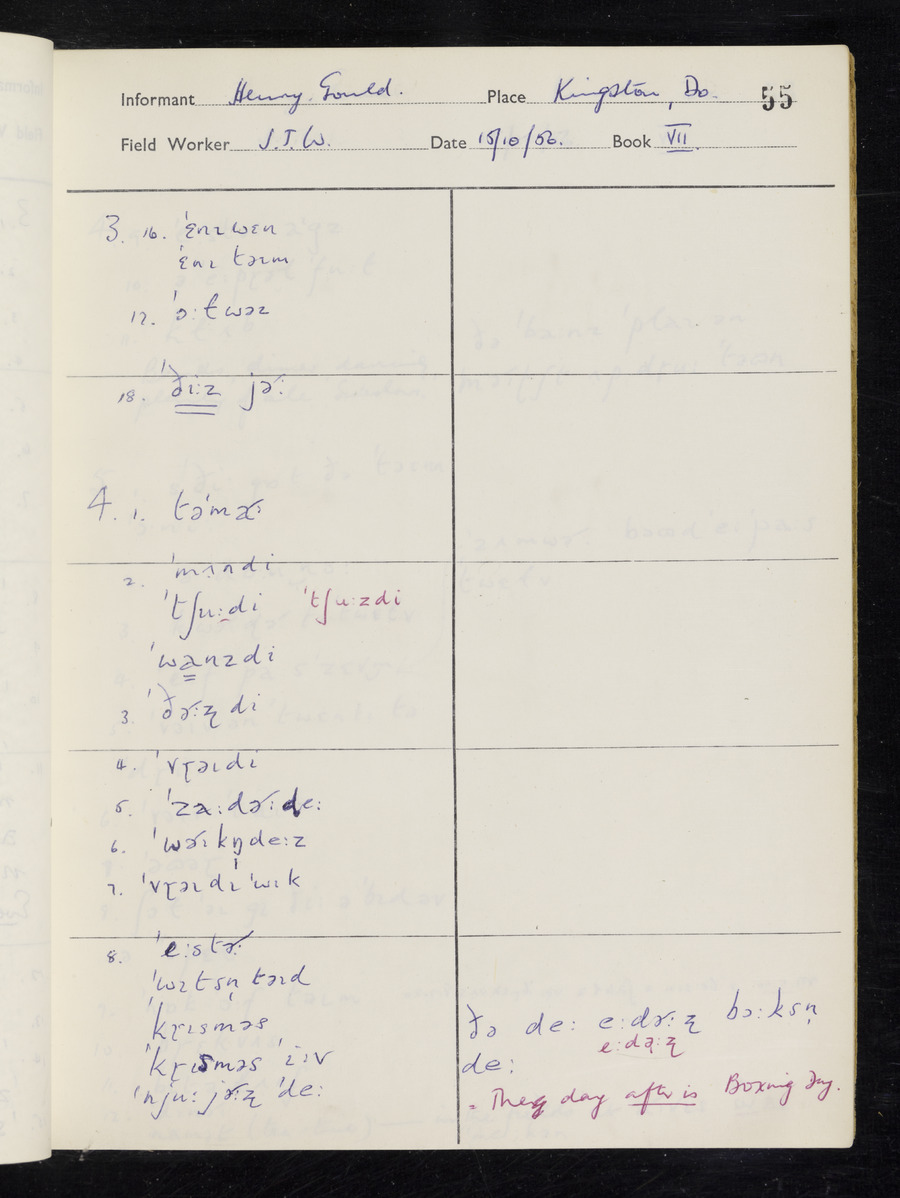 Informant Henry Gould. Place Kingston, Do. 55
Field Worker J.T.W. Date 15/10/56. Book VII.
3. 16. ˈɛnɪwɛn
ˈɛnɪ təɪm
17. ˈɔːtwəz
18. ˈðɪːz jɚː
4. 1. təˈmɑɚ
2. ˈmʌndi
ˈtʃuːdi ˈtʃuːzdi
ˈwanzdi
3. ˈðɚːʐdi
4. ˈvɽəɪdi
5. ˈzaːdɚːdeː
6. ˈwɚːkŋ̩deːz
7. ˈvɽəɪdɪ ˈwɪk
8. ˈeːstɚː
ˈwɪtsn̩təɪd
ˈkɽɪsməs
ˈkɽɪsməs ˈiːv
ˈnjuː jɚːʐ ˈdeː
ðə deː eːdɚːʐ bɔːksn̩
eːdɚːʐ
deː
= They day after is Boxing Day.